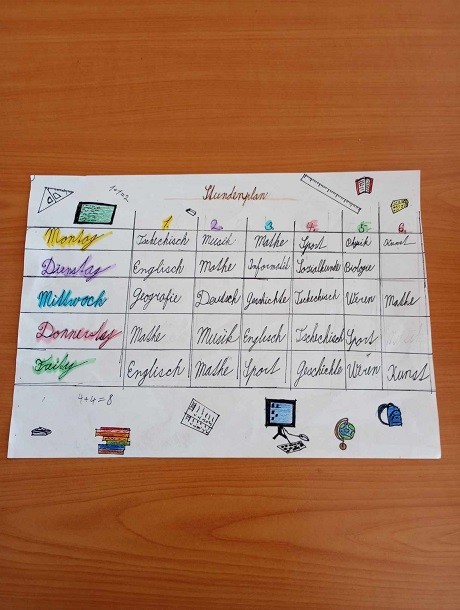 1+1=2
Stundenplan
1. 2. 3. 4. 5. 6.
Montag Tschechisch Musik Mathe Sport Physik Kunst
Dienstag Englisch Mathe Informatik Sozialkunde Biologie
Mittwoch Geografie Deutsch Geschichte Tschechisch Mathe
Donnerstag Mathe Musik Englisch Tschechisch Sport
Englisch Mathe Sport Geschichte Kunst
4+4=8